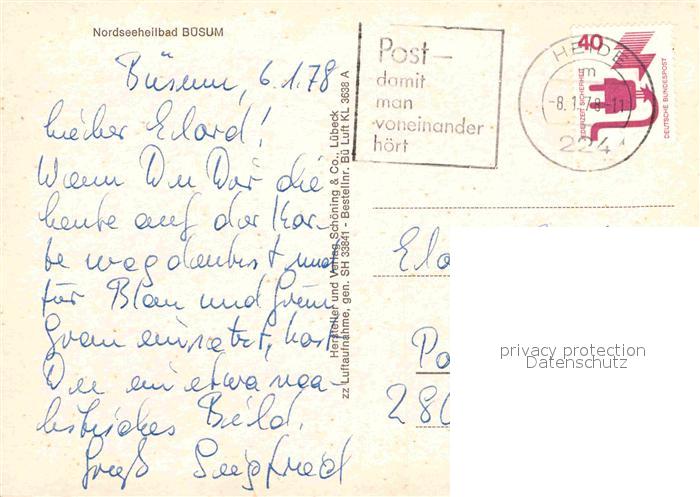 Nordseeheilbad BÜSUM
Büsum, 6.1.78
Lieber Elard!
Wenn Du Dir die
Leute auf der Kar-
te wegdenkst und
für Blau und Grün
Grau einsetzt, hast
Du ein etwa rea-
listisches Bild.
Gruß Siegfried
Hersteller und Verlag Schöning & Co., Lübeck
zz Luftaufnahme, gen. SH 33841 - Bestellnr. Bü Luft KL 3638 A
Post-
damit
man
voneinander
hört
HEIDE
m
-8.1.78-11
2241
40
JEDERZEIT SICHERHEIT
DEUTSCHE BUNDESPOST
Ela
Po
280
privacy protection
Datenschutz